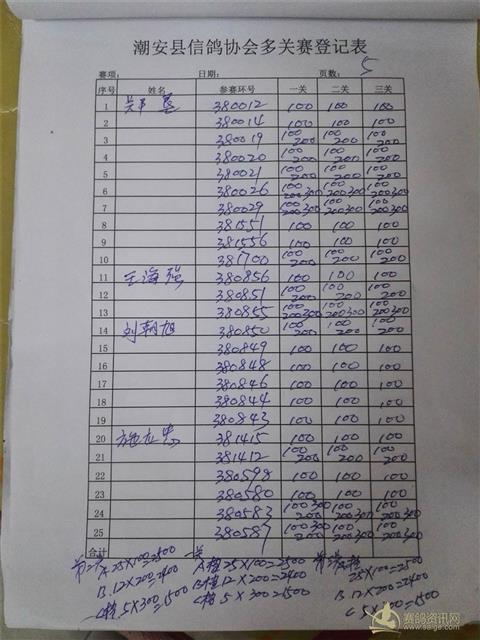 潮安县信鸽协会多关赛登记表
赛项: 日期: 页数: 5
序号 姓名 参赛环号 一关 二关 三关
1 380012 100 100 100
2 380014 100 100 100
3 380019 100 200 100 200 100 200
4 380020 100 200 100 200 100 200
5 380021 100 200 100 200 100 200
6 380026 100 200 300 100 200 300 100 200 300
7 380029 100 200 300 100 200 300 100 200 300
8 381551 100 100 100
9 381556 100 100 100
10 381700 100 200 100 200 100 200
11 王海强 380856 100 100 100
12 380851 100 200 100 200 100 200
13 380855 100 200 300 100 200 300 100 200 300
14 刘朝旭 380850 100 200 100 200 100 200
15 380849 100 100 100
16 380848 100 100 100
17 380846 100 100 100
18 380844 100 100 100
19 380843 100 100 100
20 381415 100 100 100
21 381412 100 200 100 200 100 200
22 380598 100 100 100
23 380580 100 100 100
24 380583 100 200 300 100 200 300 100 200 300
25 380587 100 200 300 100 200 300 100 200 300
合计
A 25×100=2500 A组 25×100=2500 25×100=2500
B. 12×200=2400 B组 12×200=2400 B 12×200=2400
C组 5×300=1500 C组 5×300=1500 C 5×300=1500
赛鸽资讯网
www.saige.com